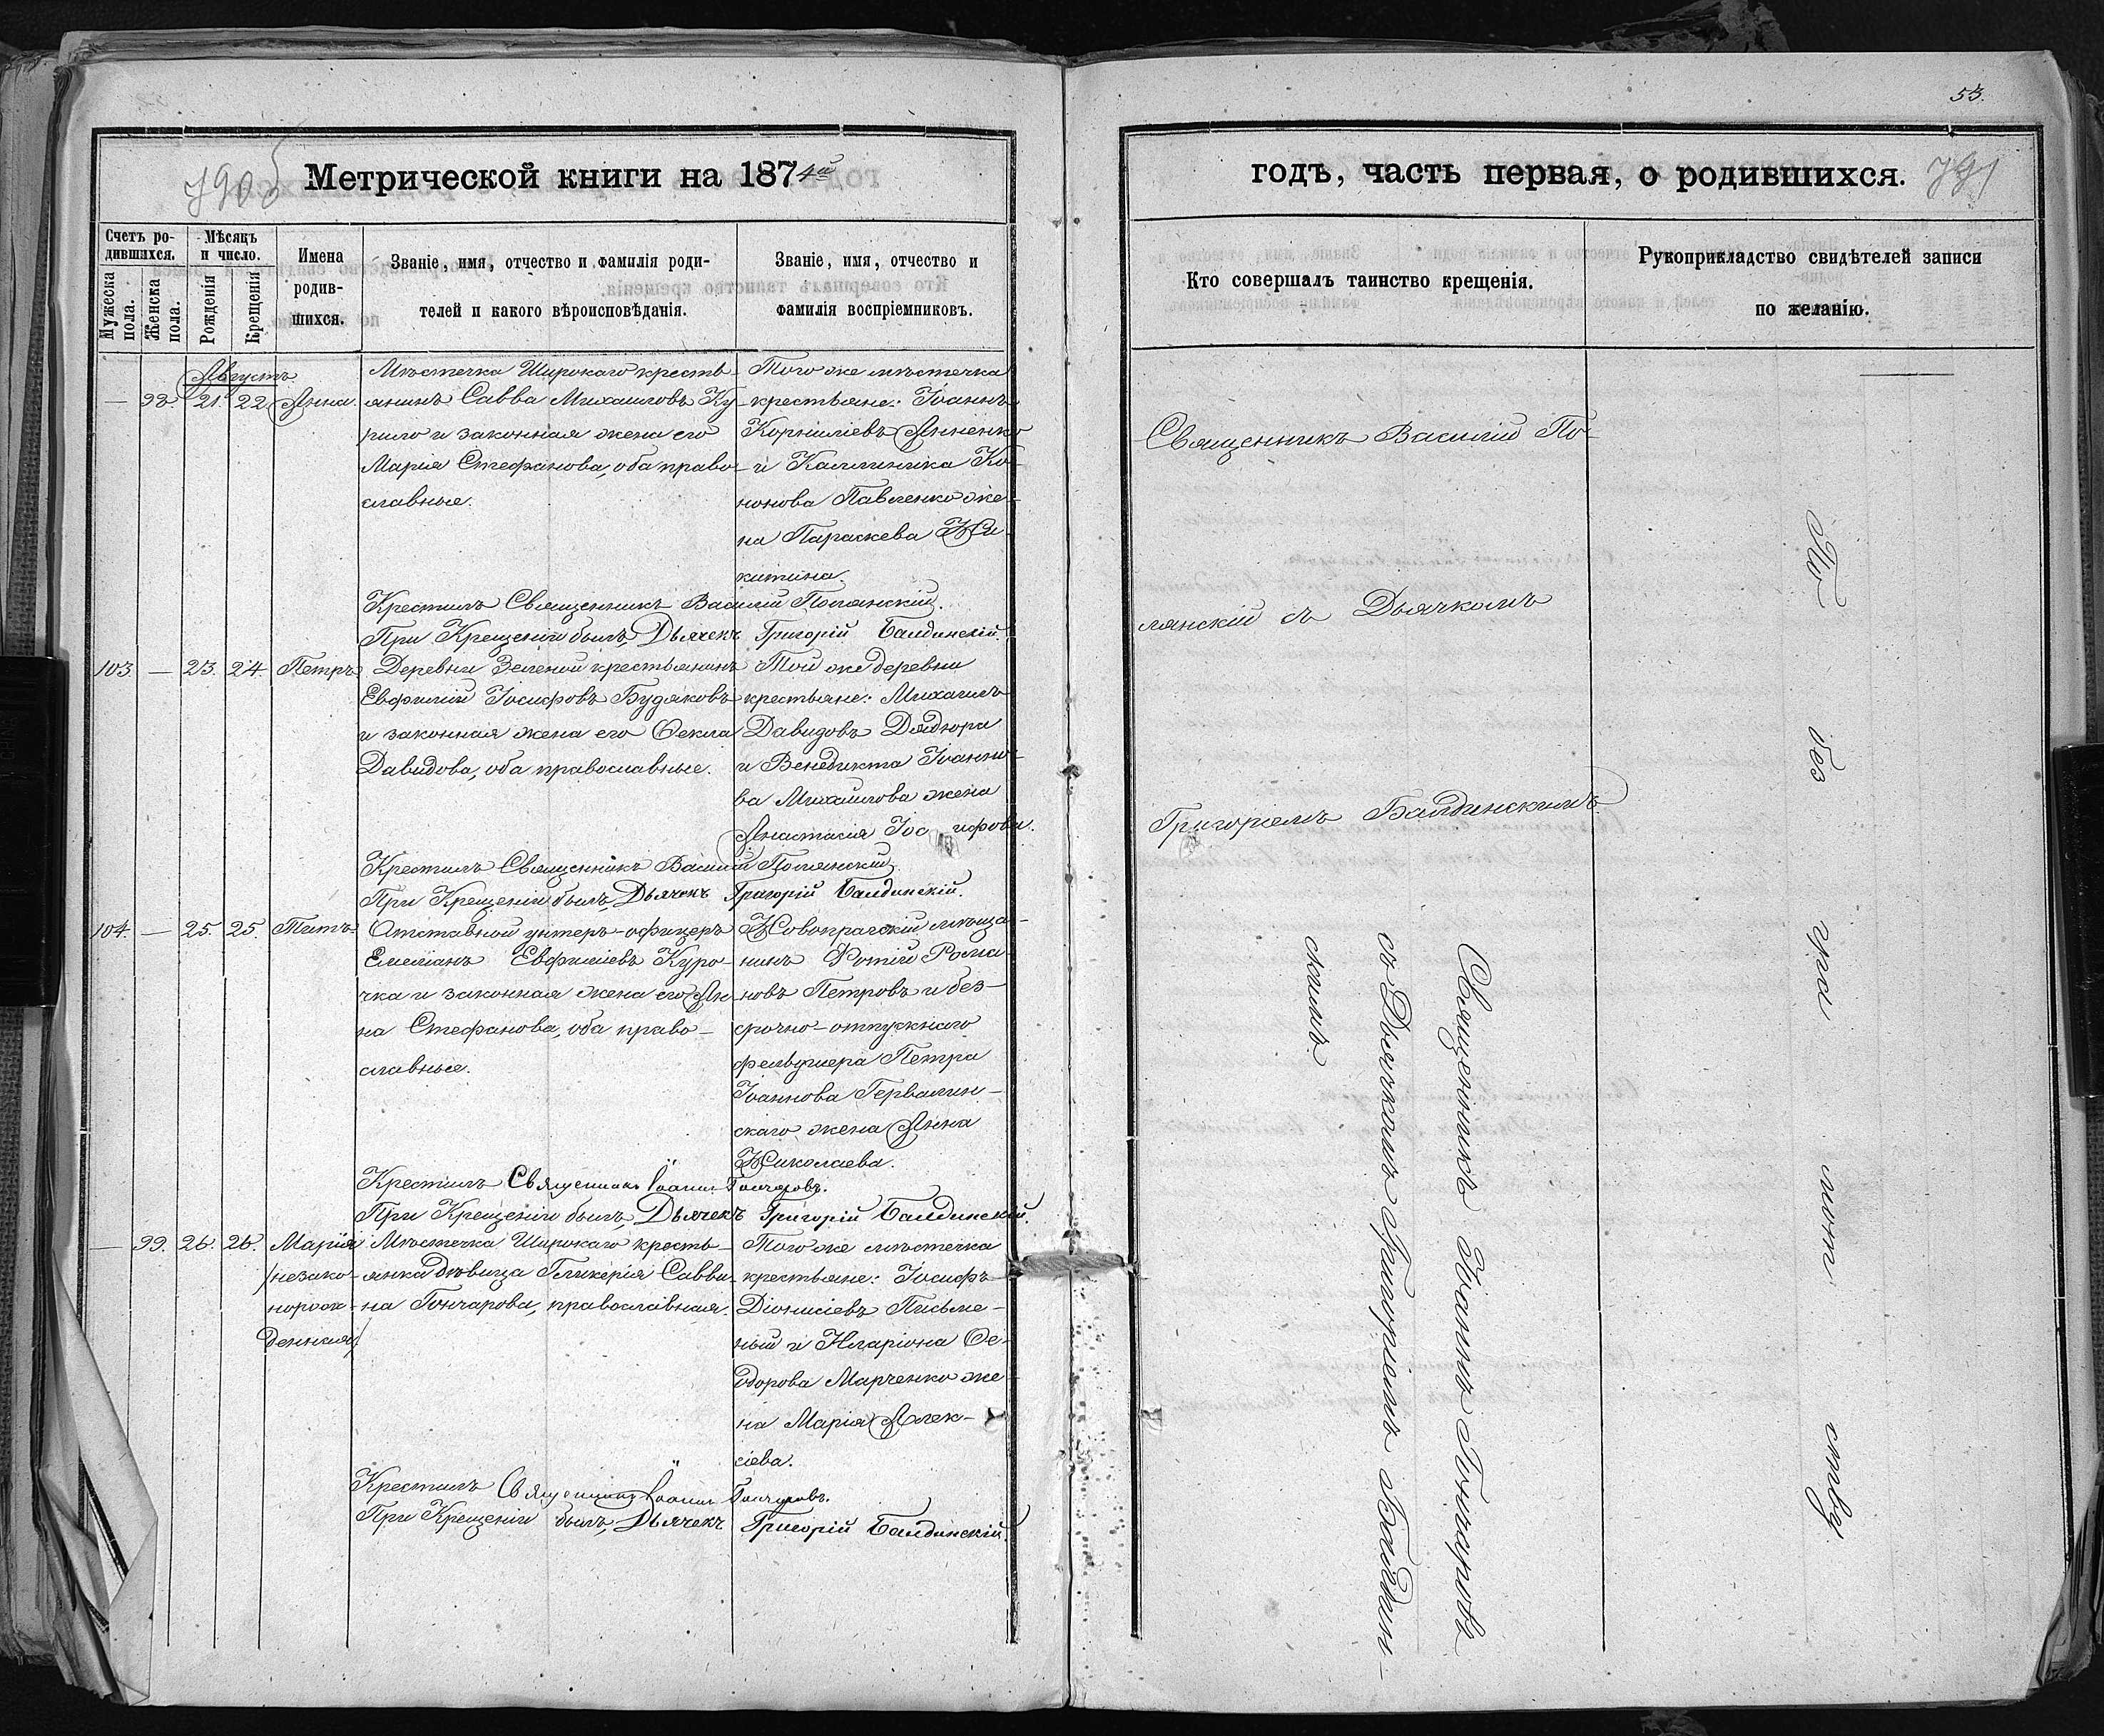 53.
790об
Метрической книги на 1874й
годъ, часть первая, о родившихся.
791
Счетъ ро-
дившихся.
Мужеска
пола.
Женска
пола.
Мѣсяцъ
и число.
Рожденія
Крещенія
Имена
родив-
шихся.
Званіе, имя, отчество и фамилія роди-
телей и какого вѣроисповѣданія.
Званіе, имя, отчество и
фамилія воспріемниковъ.
Кто совершалъ таинство крещенія.
Рукоприкладство свидѣтелей записи
по желанію.
Августъ
— 98. 21. 22. Анна.
Мѣстечка Широкаго кресть-
янинъ Савва Михаиловъ Ку-
рило и законная жена его
Марія Стефанова, оба право-
славные.
Того же мѣстечка
крестьяне: Іоаннъ
Корниліевъ Анненко
и Каллиника Ко-
нонова Павленко же-
на Параскева Ни-
китина.
Крестилъ Священникъ Василій Полянскій.
При Крещеніи былъ, Дьячекъ Григорій Балдинскій.
103. — 23. 24. Петръ
Деревни Зеленой крестьянинъ
Евфимій Іосифовъ Будяковъ
и законная жена его Ѳекла
Давидова, оба православные.
Той же деревни
крестьяне: Михаилъ
Давидовъ Дядюра
и Венедикта Іоанно-
ва Михаилова жена
Анастасія Іосифова.
Крестилъ Священникъ Василій Полянскій
При Крещеніи былъ, Дьячекъ Григорій Балдинскій.
104. — 25. 25. Титъ.
Отставной унтеръ-офицеръ
Емеліанъ Евфиміевъ Куро-
чка и законная жена его Ан-
на Стефанова, оба право-
славные.
Новопрагскій мѣща-
нинъ Фотій Рома-
новъ Петровъ и без-
срочно-отпускнаго
фельдшера Петра
Іоаннова Гервалин-
скаго жена Анна
Николаева.
Крестилъ Священникъ Іоаннъ Гончаровъ.
При Крещеніи былъ, Дьячекъ Григорій Балдинскій.
— 99. 26. 26. Марія
/незако-
норож-
денная/.
Мѣстечка Широкаго кресть-
янка дѣвица Гликерія Савви-
на Гончарова, православная.
Того же мѣстечка
крестьяне: Іосифъ
Діонисіевъ Письме-
ный и Иларіона Ѳе-
одорова Марченко же-
на Марія Алек-
сіева.
Крестилъ Священникъ Іоаннъ Гончаровъ.
При Крещеніи былъ, Дьячекъ Григорій Балдинскій.
Священникъ Василій По-
лянскій съ Дьячкомъ
Григоріемъ Балдинскимъ.
Священникъ Іоаннъ Гончаровъ
съ Дьячкомъ Григоріемъ Балдин-
скимъ